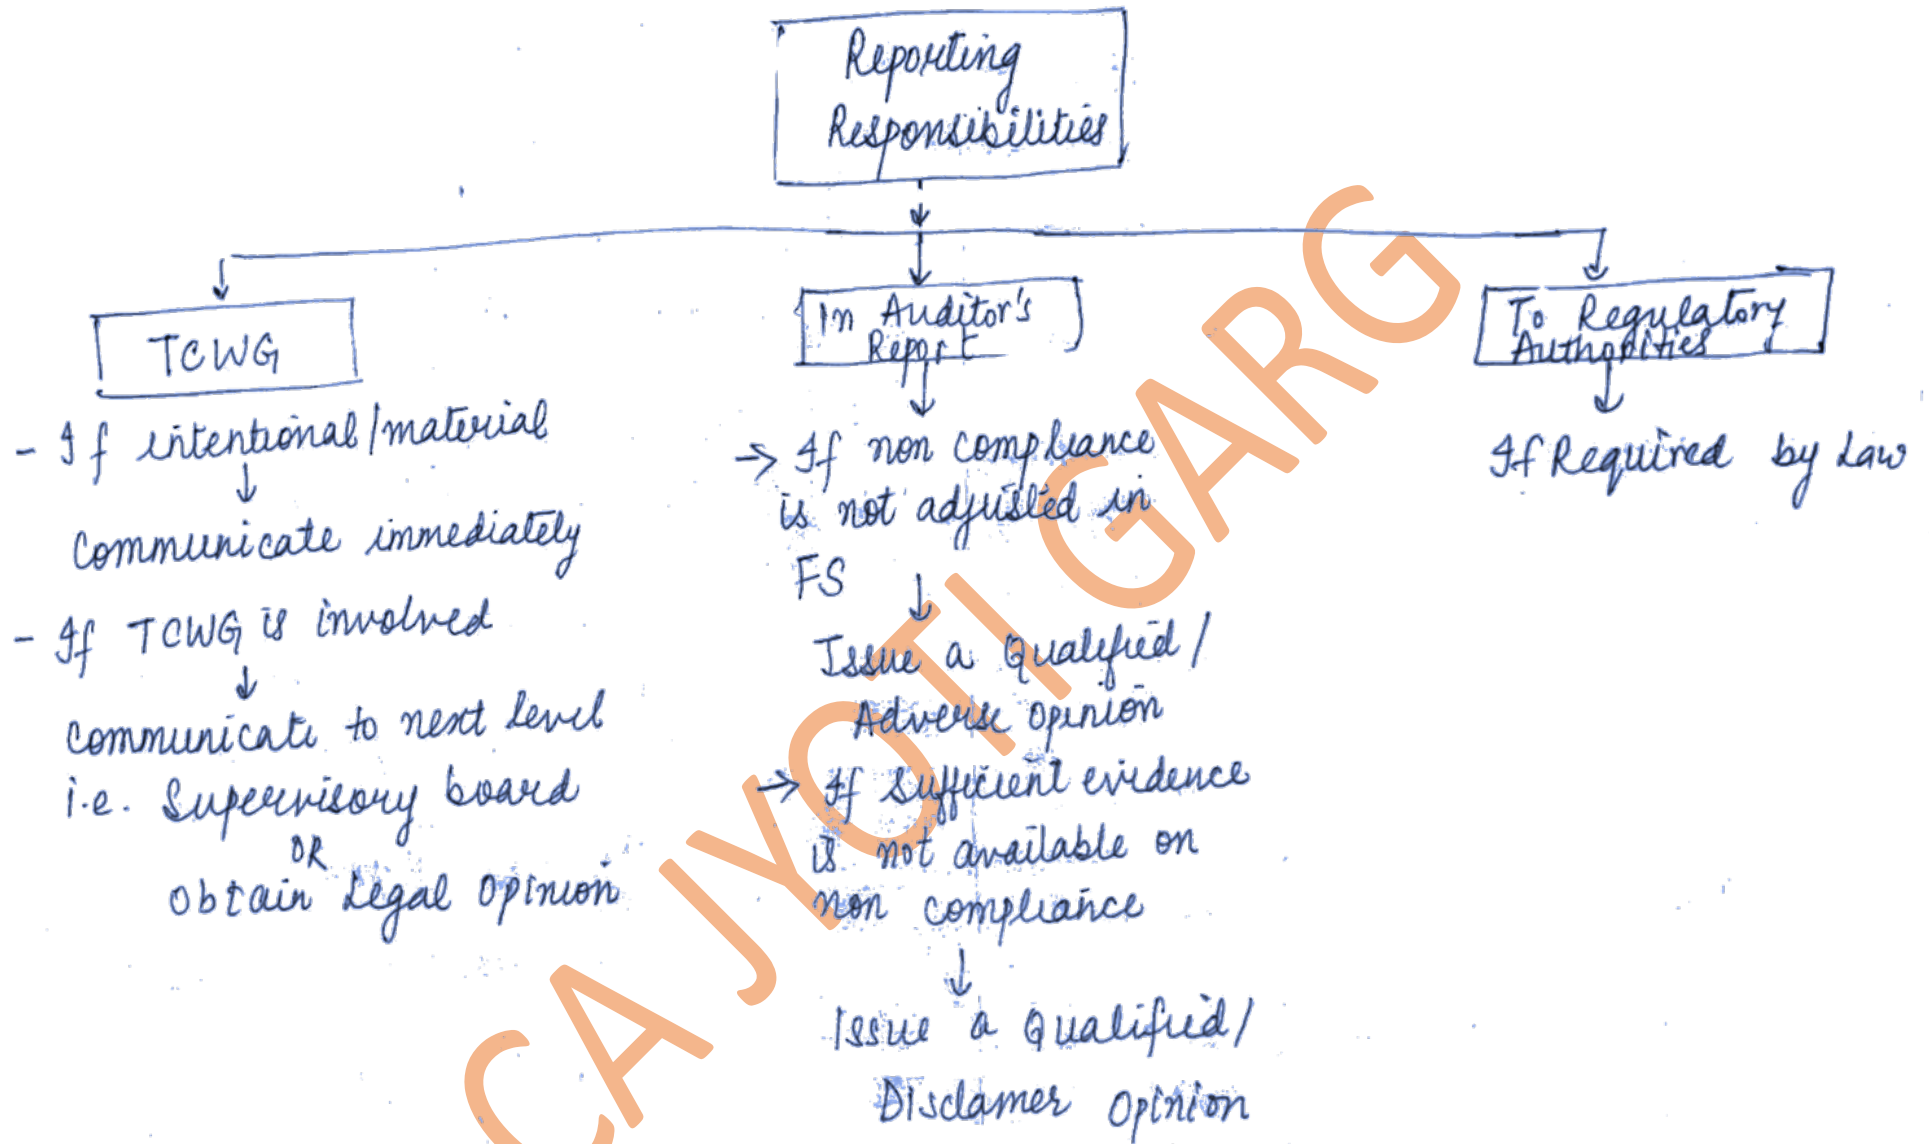 Reporting
Responsibilities
TCWG
- If intentional/material
Communicate immediately
- If TCWG is involved
Communicate to next level
i.e. Supervisory board
OR
Obtain Legal Opinion
In Auditor's
Report
→ If non compliance
is not adjusted in
FS
Issue a Qualified/
Adverse Opinion
→ If Sufficient evidence
is not available on
non compliance
Issue a Qualified/
Disclamer Opinion
To Regulatory
Authorities
If Required by Law
CA JYOTI GARG